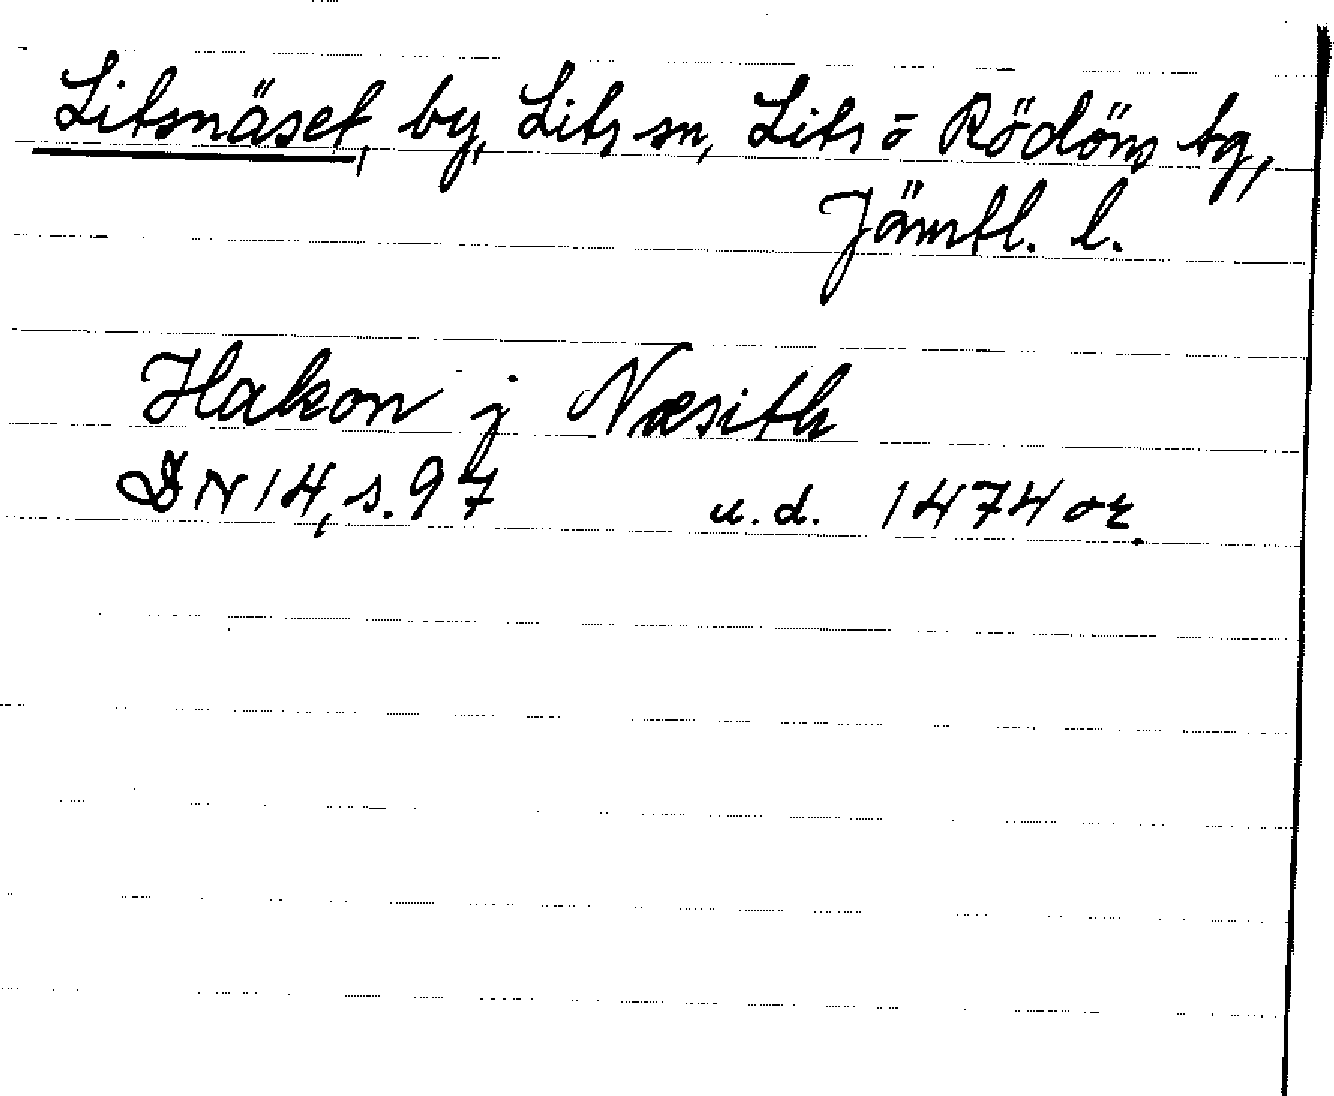 Litsnäset, by, Lits sn, Lits o Rödöns tg,
Jämtl. l.
Hakon j Næsith
DN 14, s. 97 u.d. 1474 or.